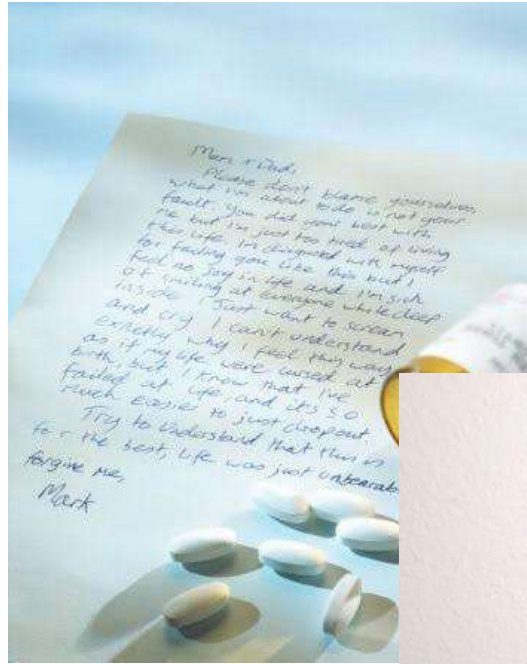 Mom + Dad,
Please don't blame yourselves,
what I'm about to do is not your
fault. You did your best with
me but I'm just too tired of living
this life. I'm disgusted with myself
for failing you like this but I
feel no joy in life and I'm sick
of smiling at everyone while deep
inside I just want to scream
and cry. I can't understand
exactly why I feel this way
as if my life were cursed at
birth, but I know that I've
failed at life, and it's so
much easier to just dropout.
Try to understand that this is
for the best, life was just
forgive me,
Mark